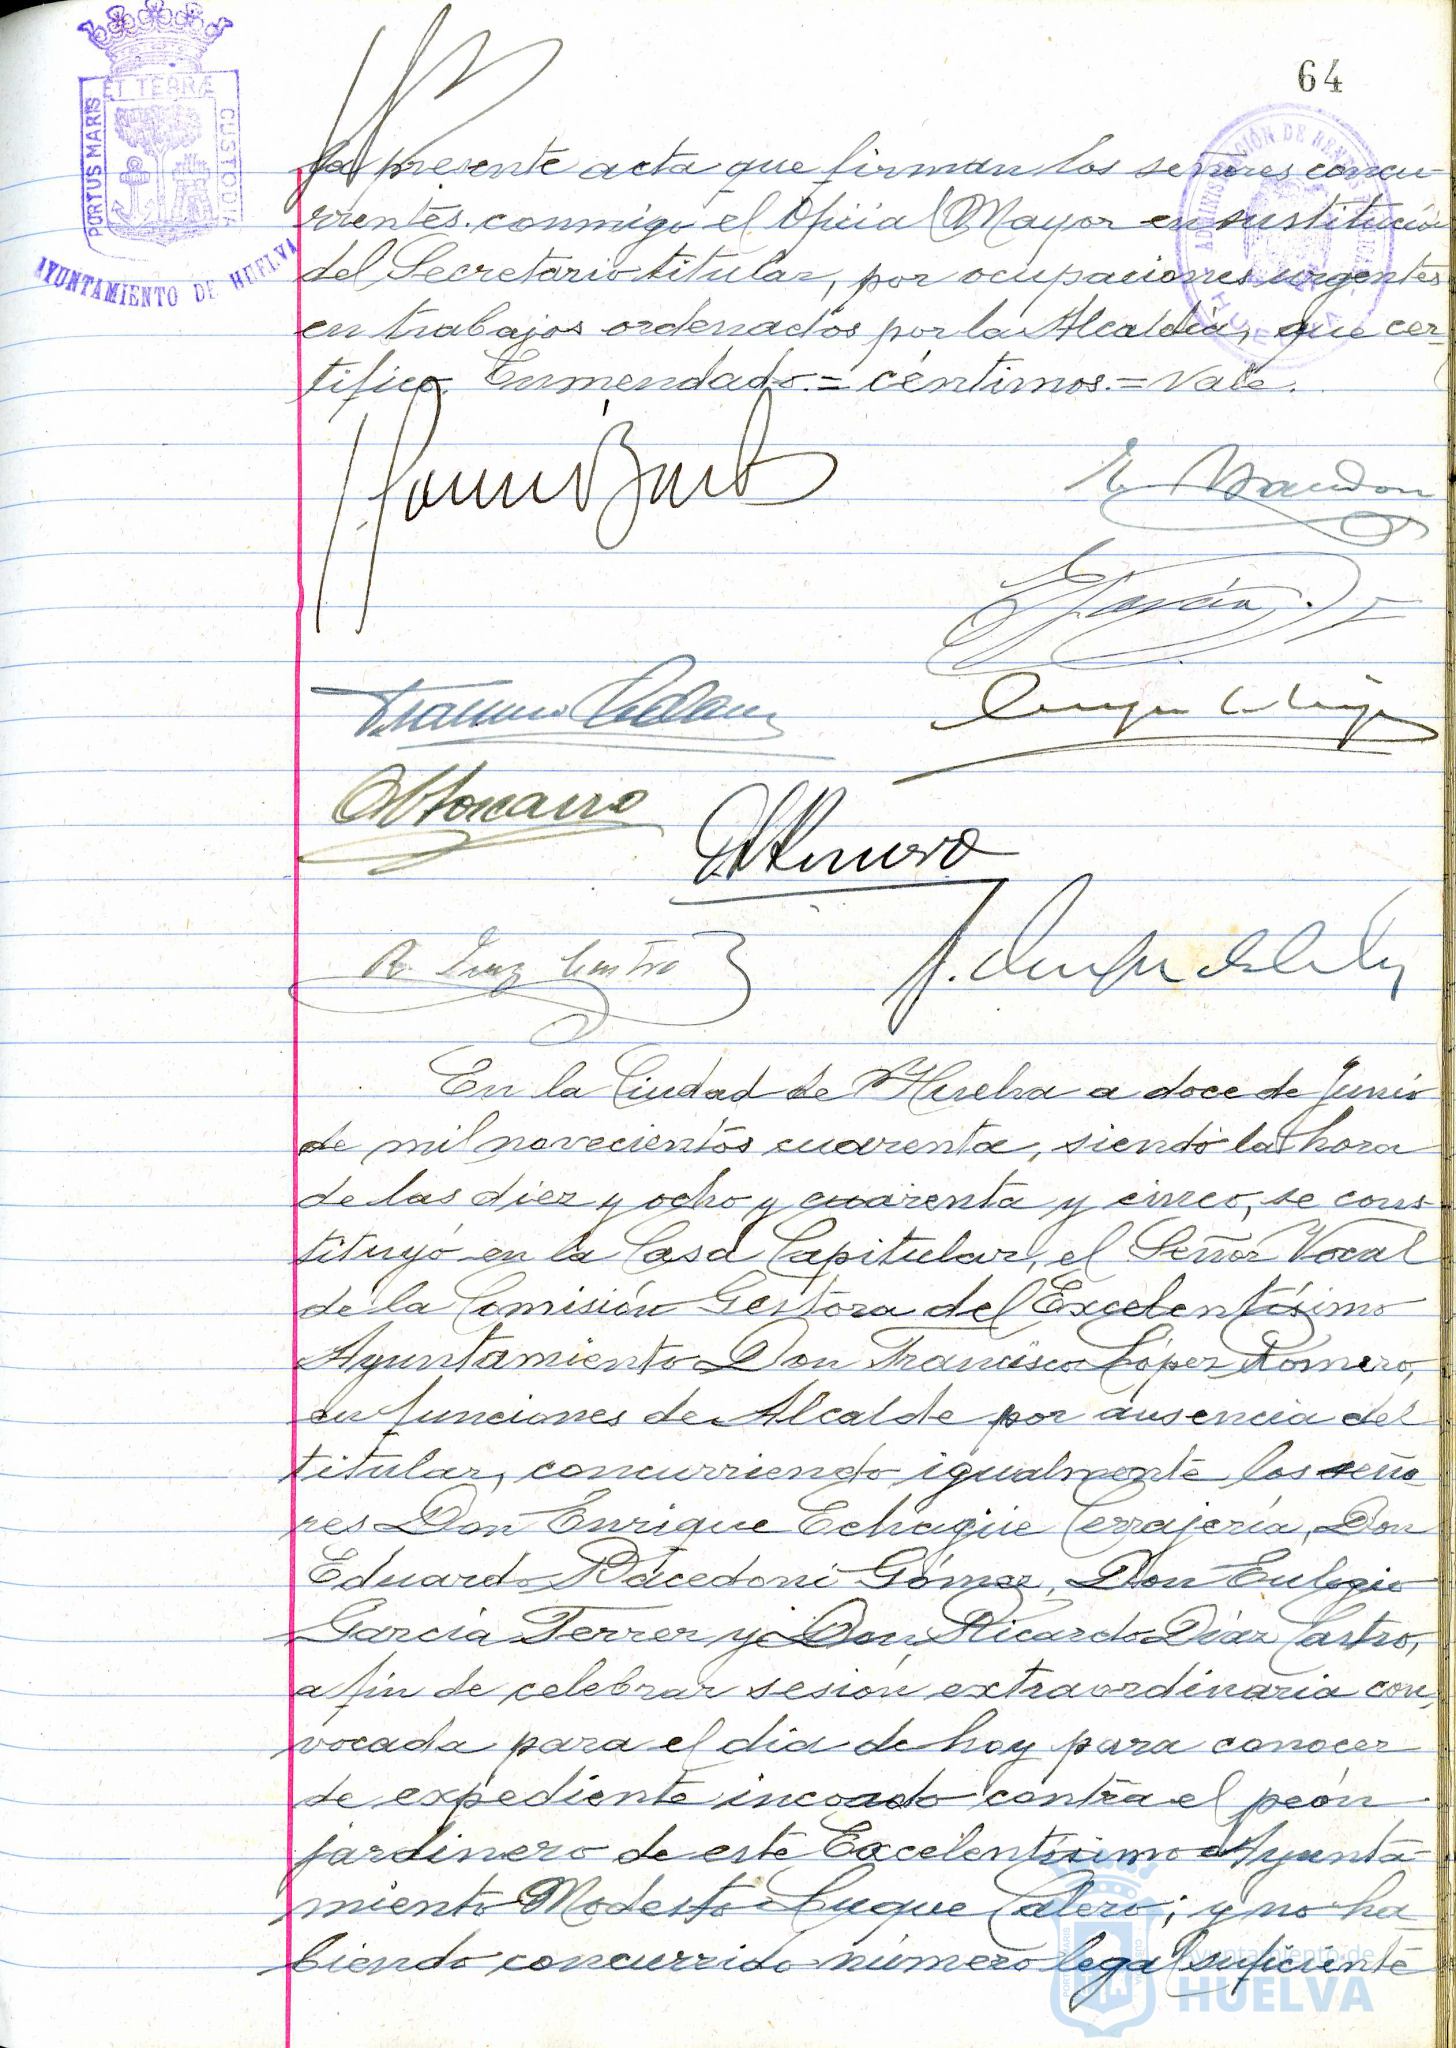 64
PORTUS MARIS ET TERRÆ CUSTODIA
AYUNTAMIENTO DE HUELVA
ADMINISTRACIÓN DE RENTAS
HUELVA
la presente acta que firman los señores concu-
rrentes conmigo el Oficial Mayor en sustitución
del Secretario titular, por ocupaciones urgentes
en trabajos ordenados por la Alcaldía, que cer-
tifico. Enmendado.=céntimos.=Vale.
R. Díaz Castro
En la Ciudad de Huelva a doce de Junio
de mil novecientos cuarenta, siendo la hora
de las diez y ocho y cuarenta y cinco, se cons-
tituyó en la Casa Capitular, el Señor Vocal
de la Comisión Gestora del Excelentísimo
Ayuntamiento Don Francisco López Romero,
en funciones de Alcalde por ausencia del
titular, concurriendo igualmente los seño
res Don Enrique Echagüe Cerrajería, Don
Eduardo Gómez, Don Eulogio
García Ferrer y Don Ricardo Díaz Castro,
a fin de celebrar sesión extraordinaria con,
vocada para el día de hoy para conocer
de expediente incoado contra el peón
jardinero de este Excelentísimo Ayunta-
miento Modesto Luque Calero; y no ha
biendo concurrido número legal suficiente
Ayuntamiento de
HUELVA